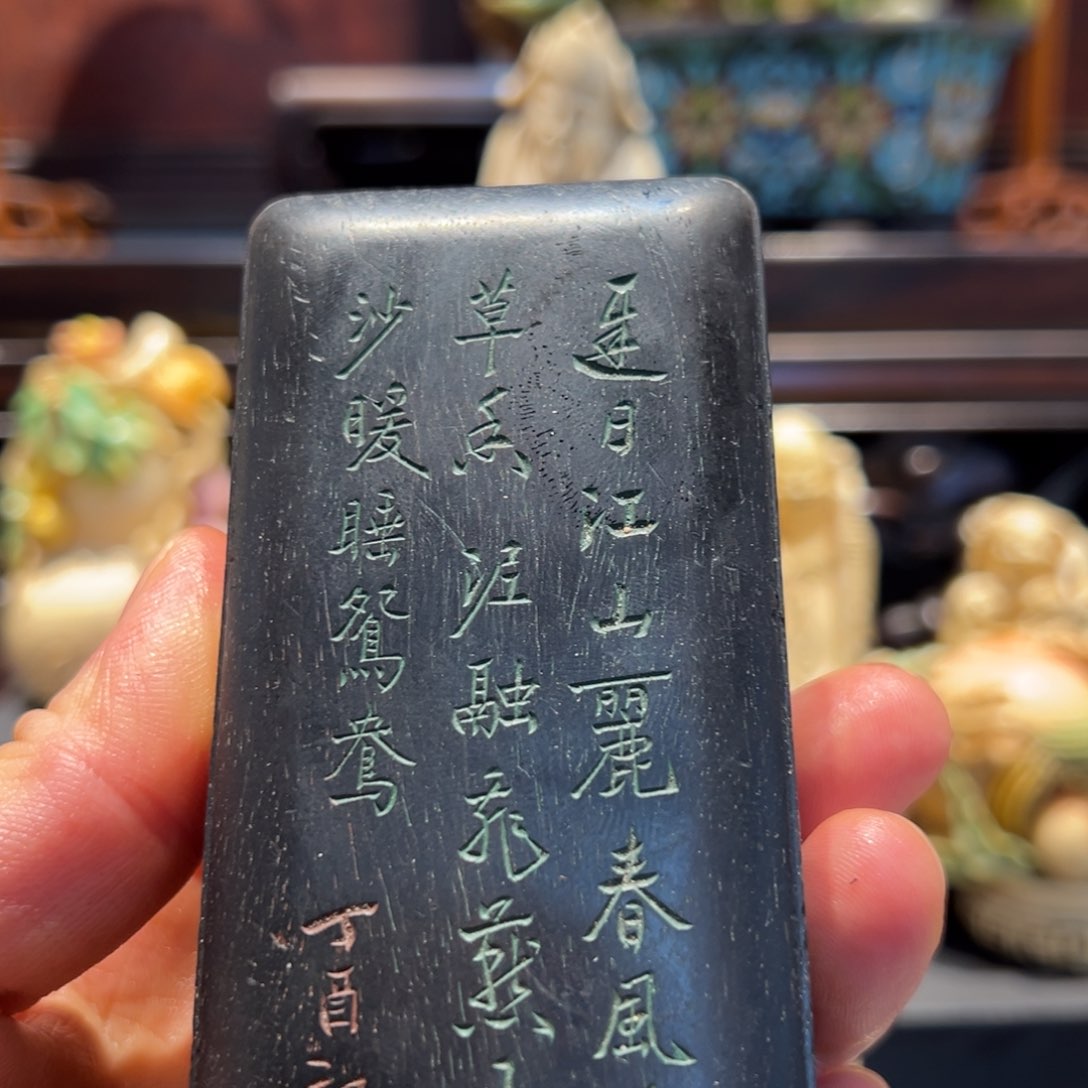 遲日江山麗春風
草香泥融飛燕
沙暖睡鴛鴦
丁酉